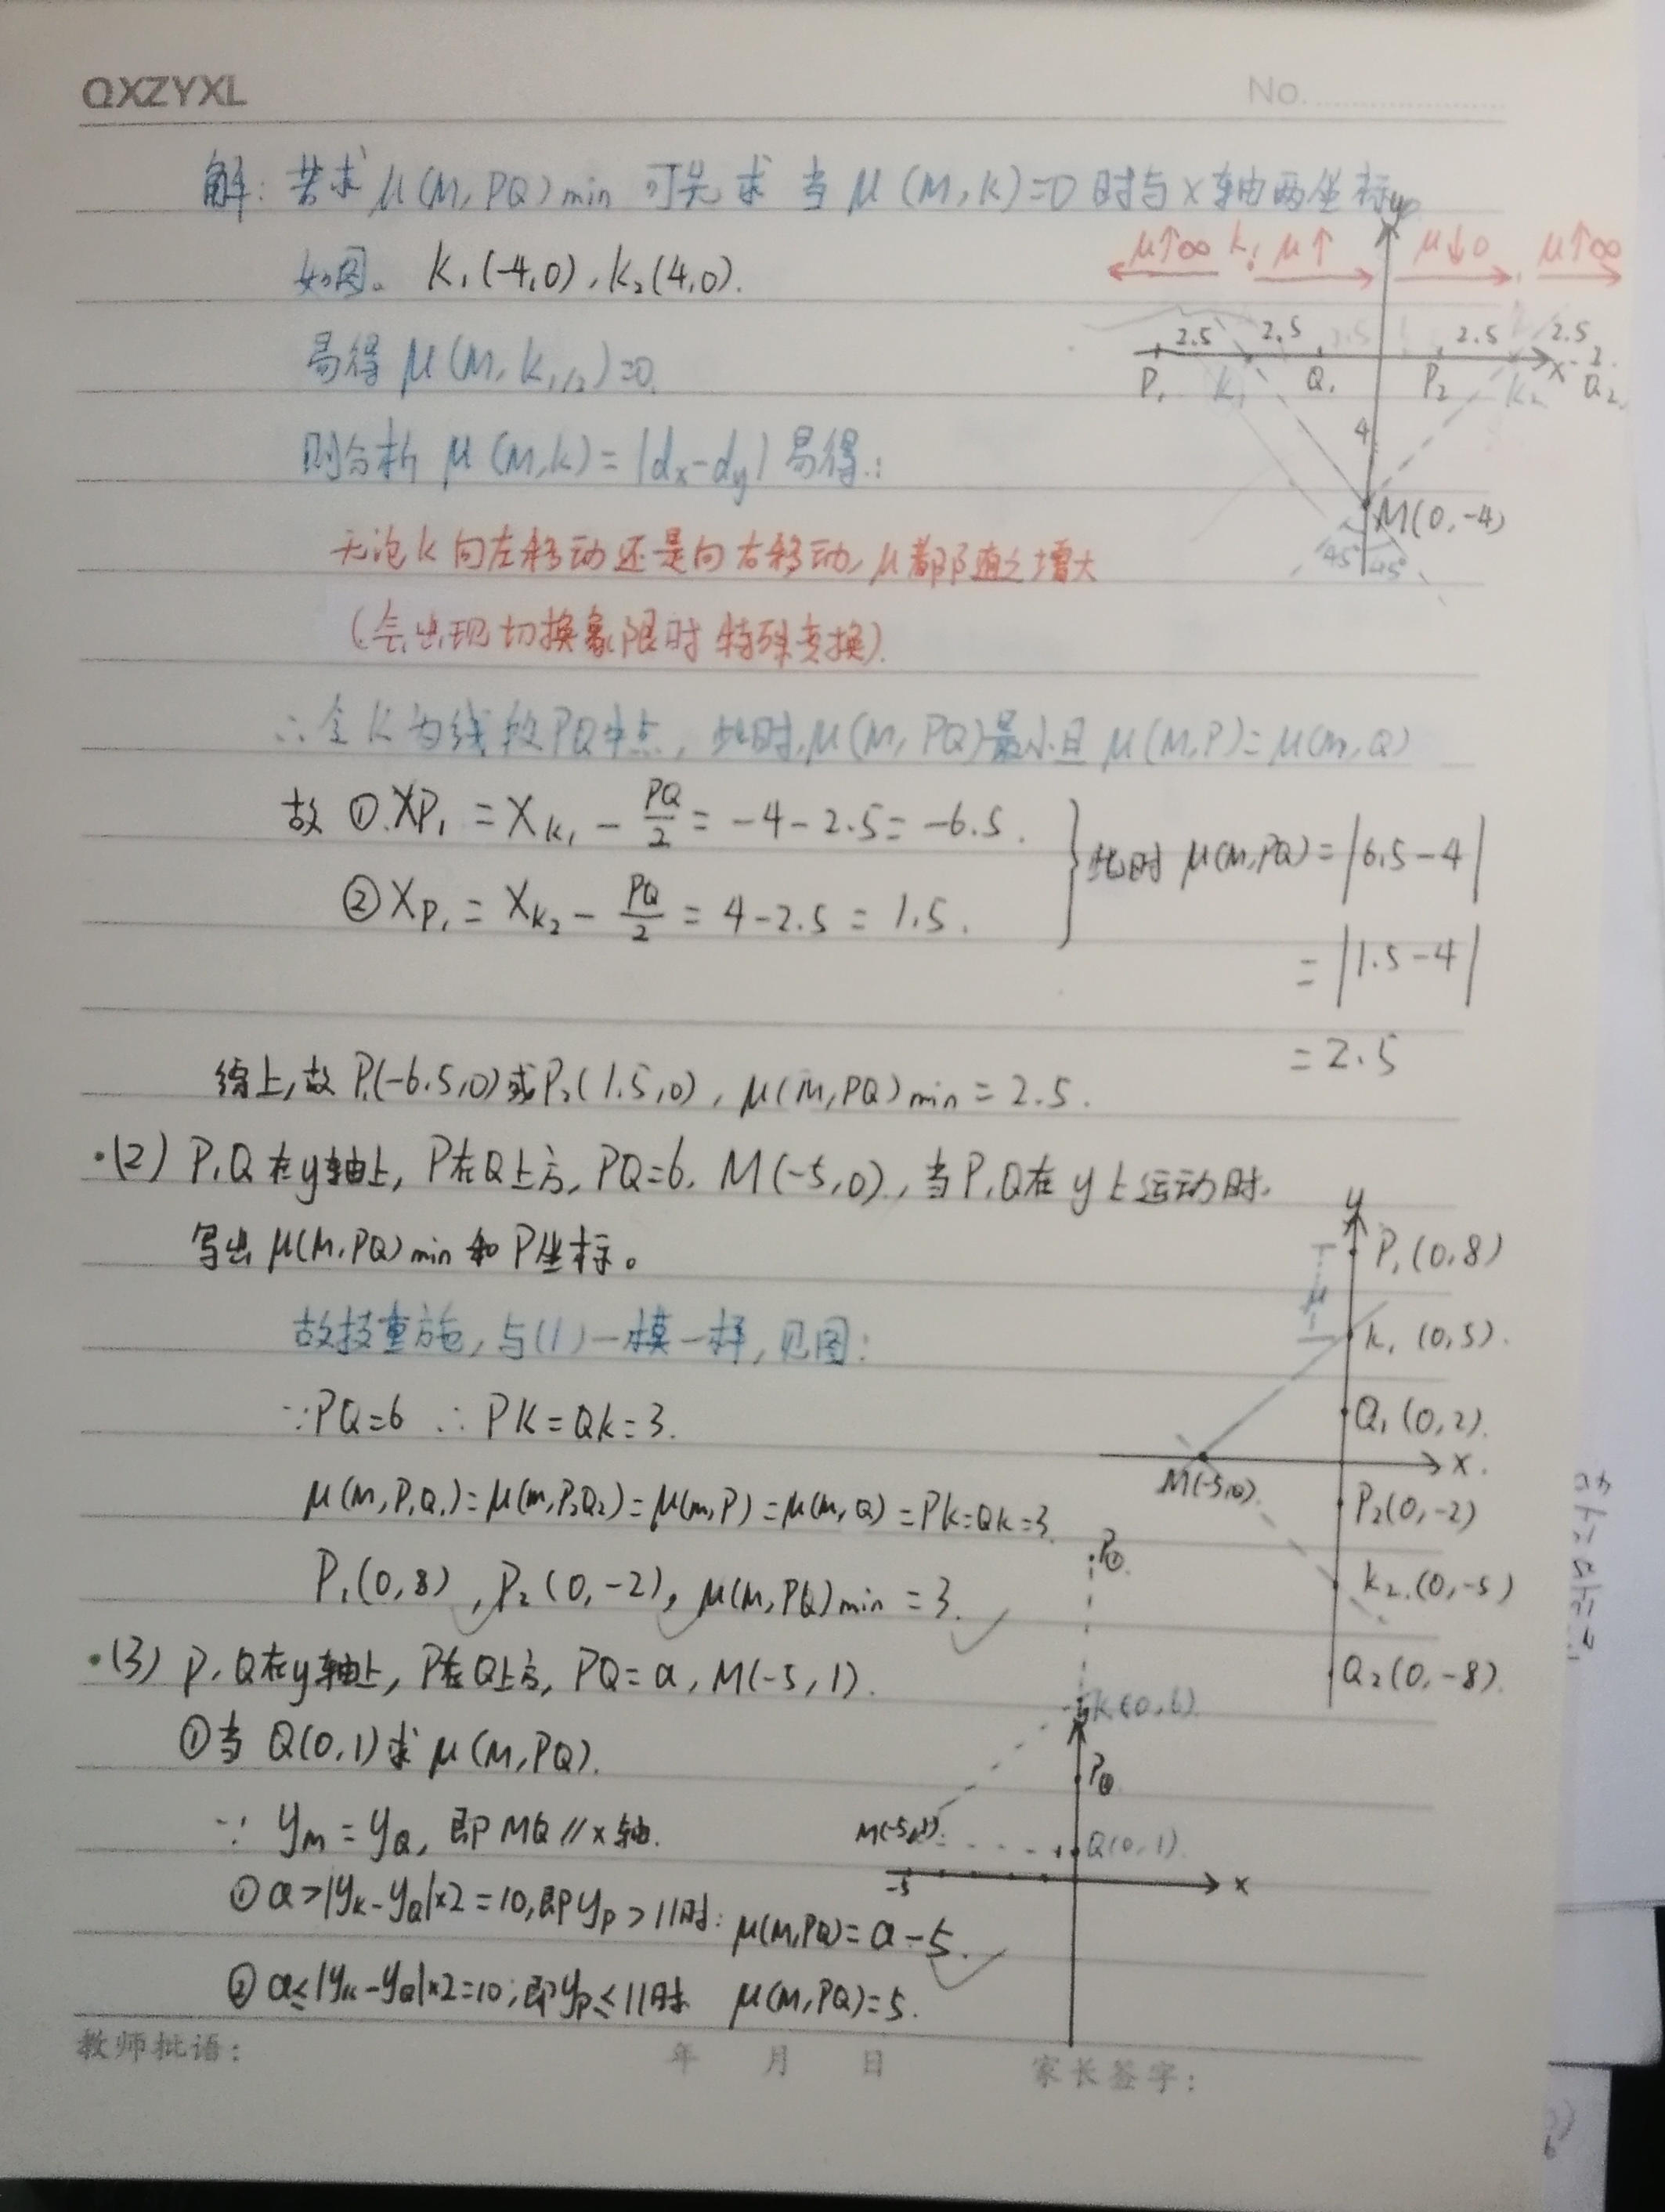 QXZYXL
No.
解: 若求 μ(M,PQ)min 可先求 当 μ(M,K)=0 时与x轴两坐标
如图。 K₁(-4,0), K₂(4,0).
易得 μ(M,K₁/₂)=0.
则分析 μ(M,K)=|dx-dy| 易得:
无论K向左移动还是向右移动, μ都随之增大
(会出现切换象限时特殊变换).
∴令K为线段PQ中点, 此时, μ(M,PQ)最小且 μ(M,P)=μ(M,Q)
故 ①.XP₁ = XK₁ - PQ/2 = -4-2.5 = -6.5.
②XP₁ = XK₂ - PQ/2 = 4-2.5 = 1.5.
此时 μ(M,PQ)=|6.5-4|
=|1.5-4|
=2.5
综上, 故 P₁(-6.5,0)或P₂(1.5,0), μ(M,PQ)min = 2.5.
μ↑∞ K₁ μ↑ μ↓0 μ↑∞
y
2.5 2.5 2.5 2.5
P₁ K₁ Q₁ P₂ K₂ x Q₂
4
M(0,-4)
45° 45°
·(2) P,Q在y轴上, P在Q上方, PQ=6, M(-5,0), 当P,Q在y上运动时,
写出 μ(M,PQ)min 和P坐标。
故技重施, 与(1)一模一样, 见图:
∵PQ=6 ∴PK=QK=3.
μ(M,P₁Q₁)=μ(M,P₂Q₂)=μ(M,P)=μ(M,Q)=PK=QK=3.
P₁(0,8), P₂(0,-2), μ(M,PQ)min = 3.
y
P₁(0,8)
μ
K₁(0,5).
Q₁(0,2).
x.
M(-5,0).
P₂(0,-2)
K₂.(0,-5)
Q₂(0,-8).
·(3) P,Q在y轴上, P在Q上方, PQ=a, M(-5,1).
①当 Q(0,1)求 μ(M,PQ).
∵ yM=yQ, 即MQ∥x轴.
① a>|yK-yQ|×2=10,即yP>11时: μ(M,PQ)=a-5.
② a≤|yK-yQ|×2=10,即yP≤11时 μ(M,PQ)=5.
P①
K(0,6)
P②
M(-5,1).
Q(0,1).
-5
x
教师批语:
年 月 日
家长签字: